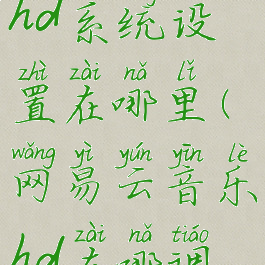 hd系统设
zhì zài nǎ lǐ
置在哪里(
wǎng yì yún yīn lè
网易云音乐
zài nǎ tiáo
hd在哪调